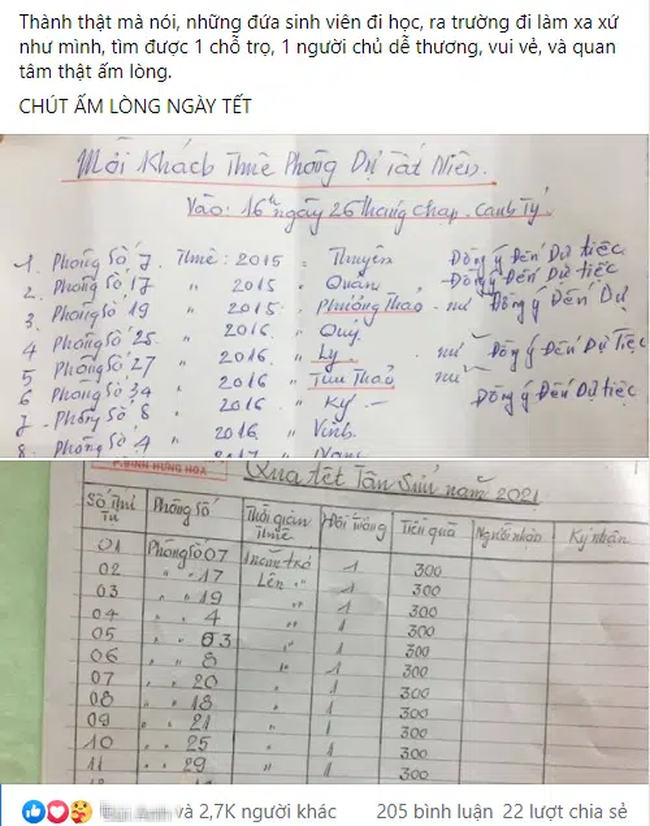 Thành thật mà nói, những đứa sinh viên đi học, ra trường đi làm xa xứ
như mình, tìm được 1 chỗ trọ, 1 người chủ dễ thương, vui vẻ, và quan
tâm thật ấm lòng.
CHÚT ẤM LÒNG NGÀY TẾT
Mời Khách Thuê Phòng Dự Tất Niên.
Vào: 16h ngày 26 Tháng Chạp. Canh Tý
1. Phòng Số 7. Thuê: 2015 " Thuyên Đồng ý Đến Dự tiệc
2. Phòng Số 17 " 2015 " Quân Đồng ý Đến Dự tiệc
3. Phòng Số 19 " 2015. Phương Thảo - nữ Đồng ý Đến Dự
4 Phòng Số 25 " 2016. " Quý.
5 Phòng Số 27 " 2016. " Ly . nữ Đồng ý Đến Dự Tiệc
6 Phòng Số 34 " 2016 " Thu Thảo nữ
7 - Phòng Số 8 " 2016 " Ký - Đồng ý Đến Dự tiệc
8. Phòng Số 4 " 2016. " Vinh
P.BÌNH HƯNG HÒA
Quà tết Tân Sửu năm 2021
Số Thứ Tự Phòng Số Thời gian Thuê Đối tượng Tiền quà Người nhận Ký nhận
01 Phòng Số 07 1 300
02 " " 17 Lên " 1 300
03 " " 19 " 1 300
04 " " 4 " 1 300
05 " " 03 " 1 300
06 " " 8 " 1 300
07 " " 20 " 1 300
08 " " 18 " 1 300
09 " " 21 " 1 300
10 " " 25 " 1 300
11 " " 29 " 1 300
và 2,7K người khác 205 bình luận 22 lượt chia sẻ